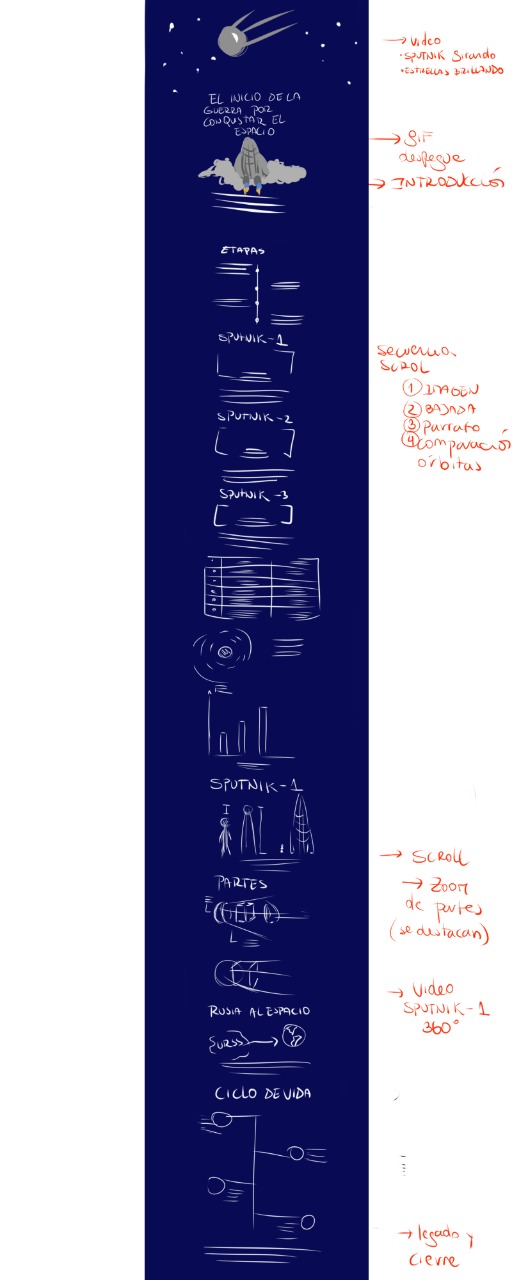 → VIDEO
• SPUTNIK Girando
• ESTRELLAS BRILLANDO
EL INICIO DE LA
GUERRA POR
CONQUSTAR EL
ESPACIO
→ GIF
despegue
→ INTRODUCCIÓN
ETAPAS
SPUTNIK-1
secuencia
SCROL
① IMAGEN
② BAJADA
③ Parrafo
④ comparación
órbitas
SPUTNIK-2
SPUTNIK-3
SPUTNIK-1
→ SCROLL
PARTES
→ Zoom
de partes
(se destacan)
→ Video
SPUTNIK-1
360°
RUSIA AL ESPACIO
URSS
CICLO DE VIDA
→ legado y
cierre